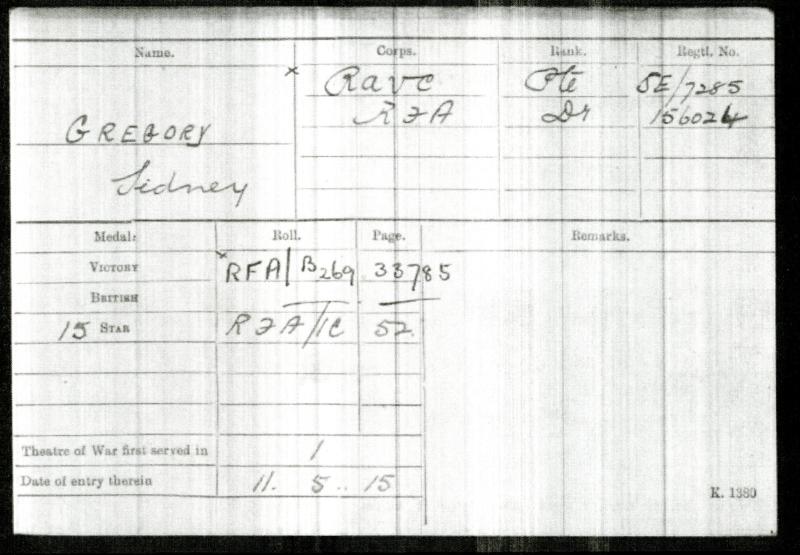 Name. Corps. Rank. Regtl. No.
× RAVC Pte SE/7285
RFA Dr 156024
GREGORY
Sidney
Medal: Roll. Page. Remarks.
VICTORY × RFA/B269 33785
BRITISH
15 STAR RFA/1C 52.
Theatre of War first served in 1
Date of entry therein 11. 5.. 15
K. 1380